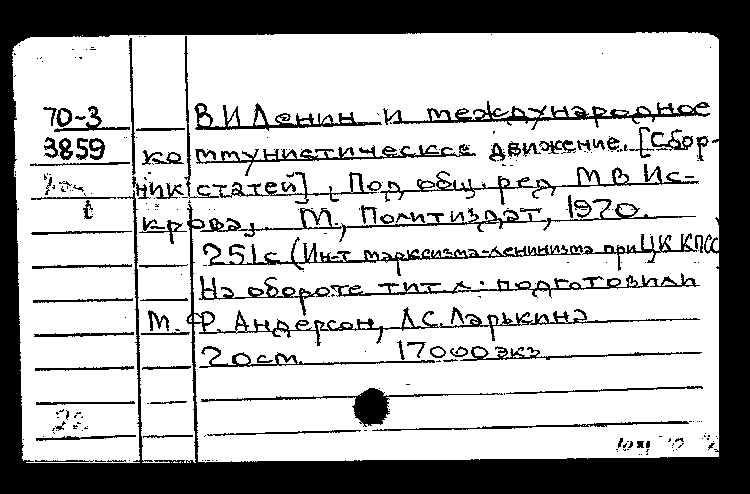 70-3 В.И Ленин и международное
3859 коммунистическое движение. [Сбор-
ник статей]. Под общ. ред М В Ис-
крова. М., Политиздат, 1970.
251с (Ин-т марксизма-ленинизма при ЦК КПСС
На обороте тит л: подготовили
М.Ф. Андерсон, Л.С. Ларькина
20 ст. 17000 экз.
2г